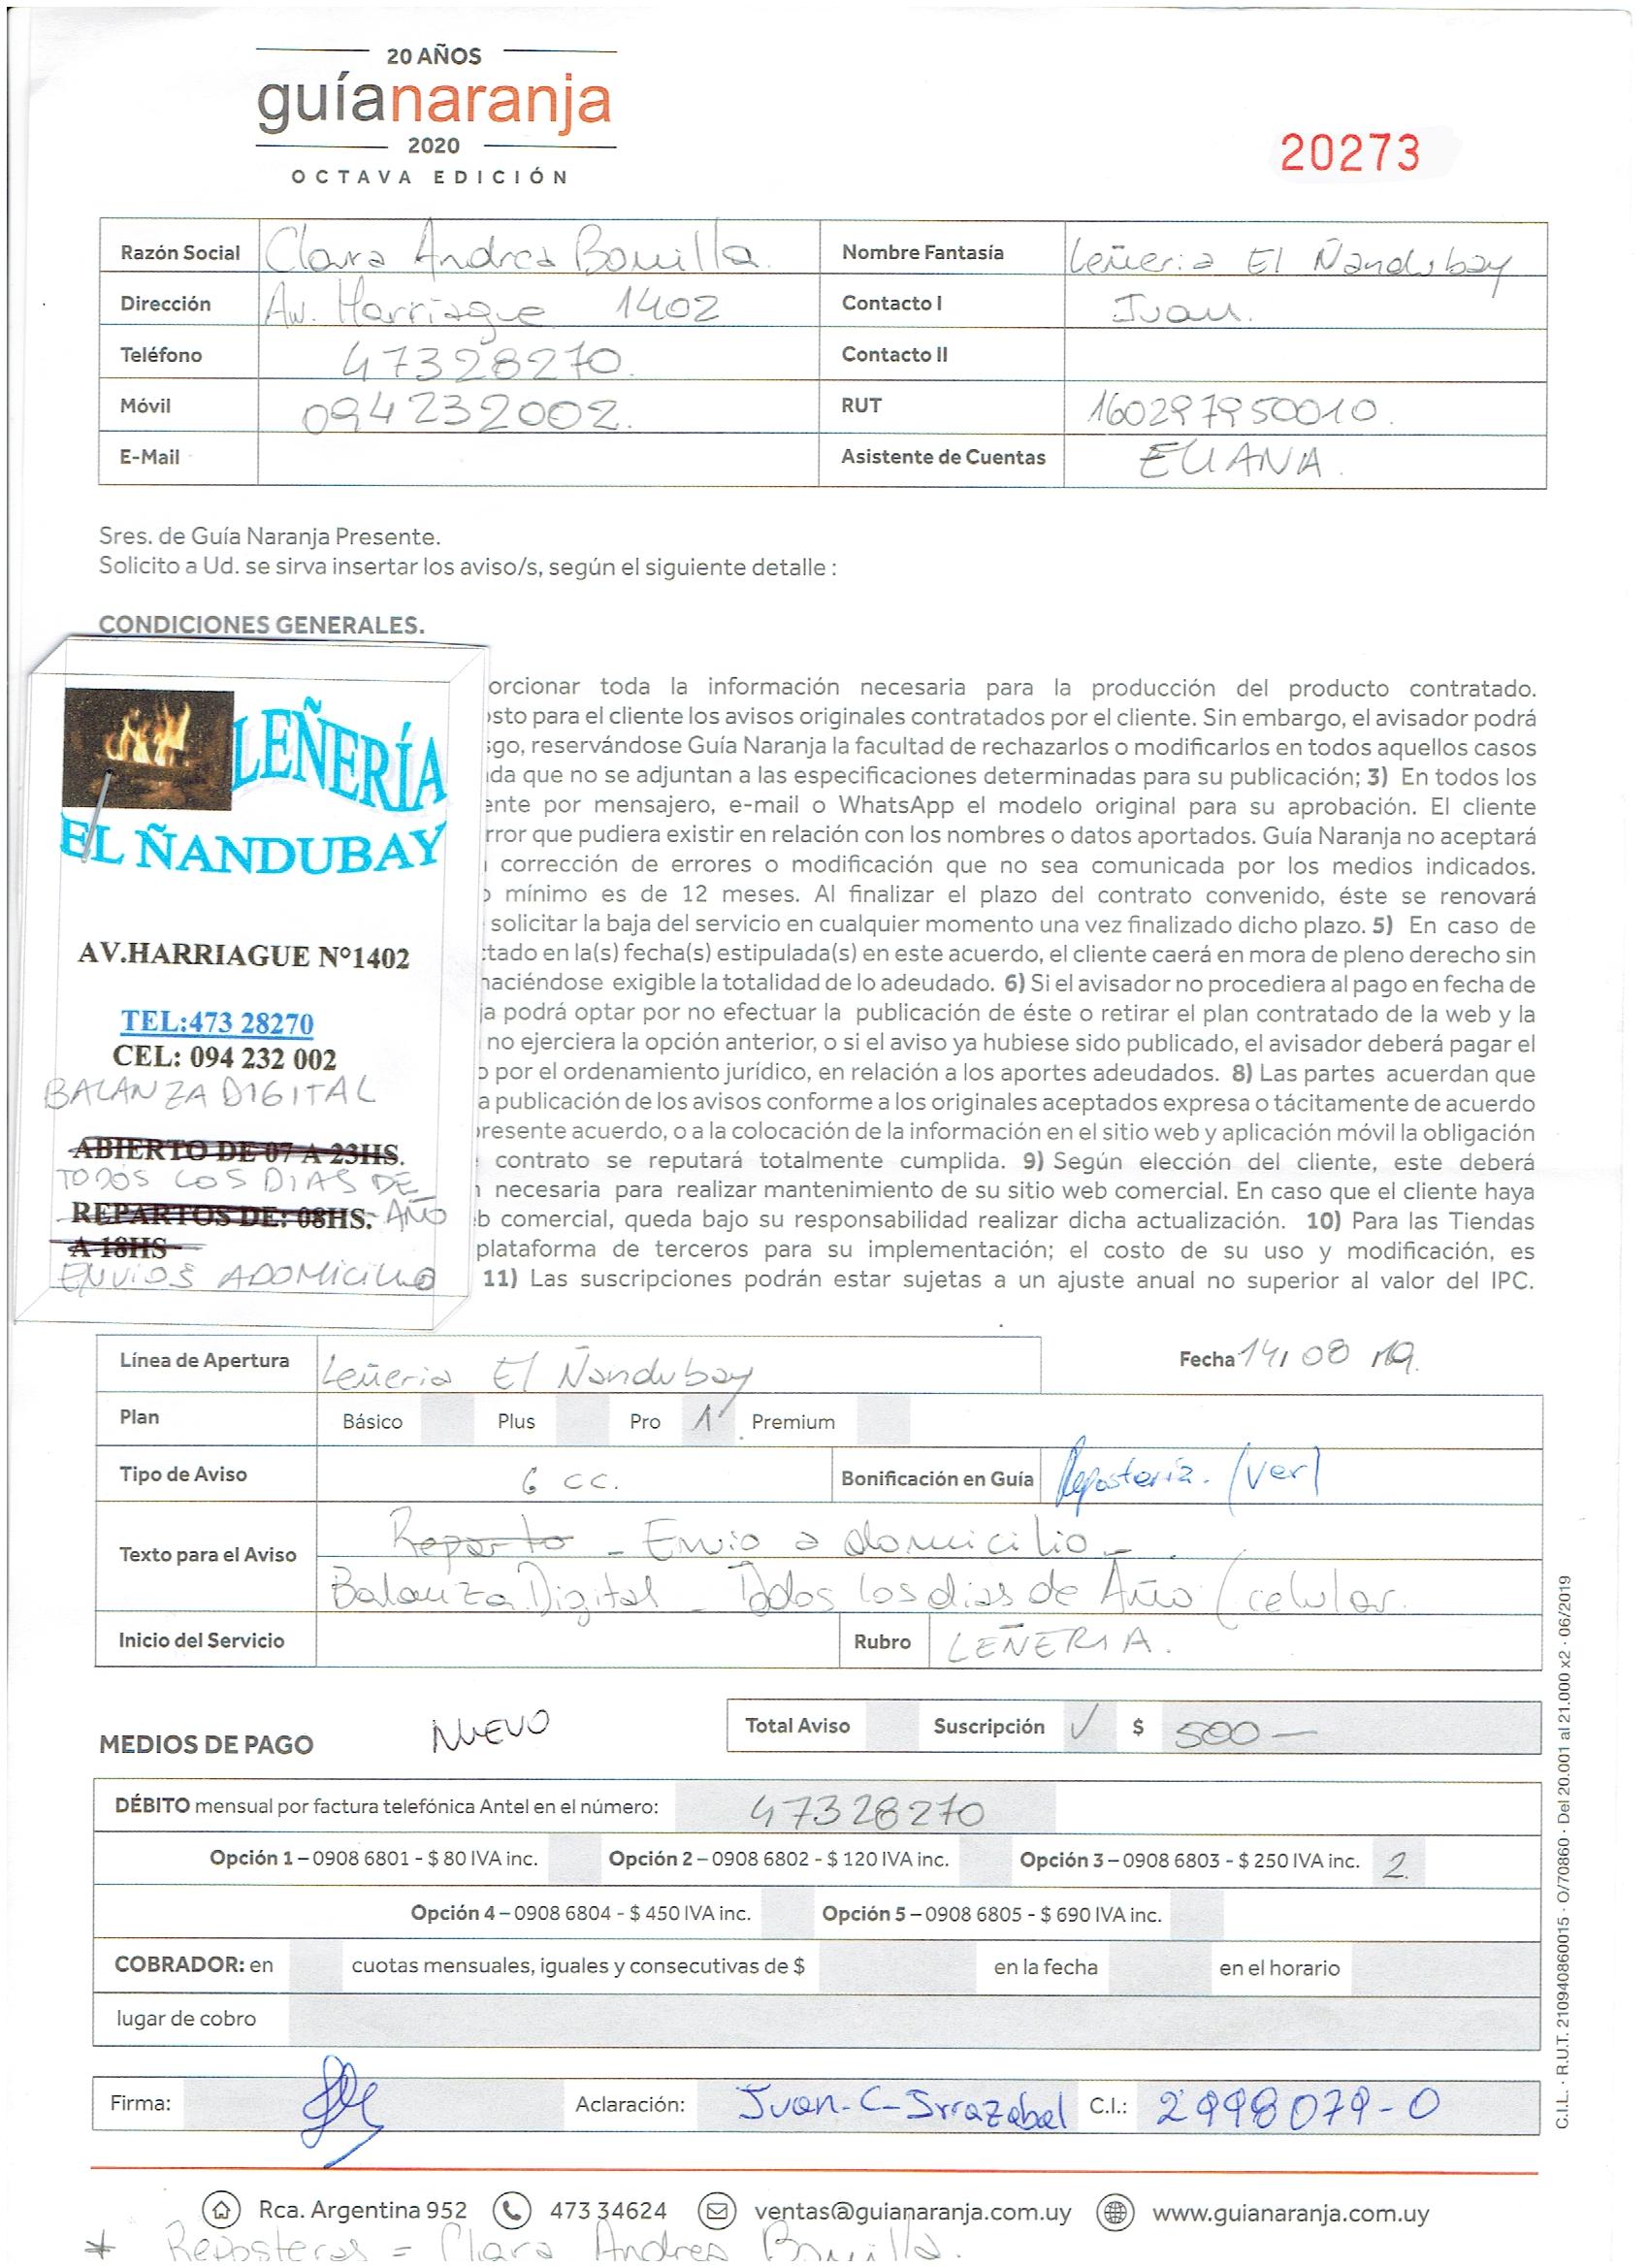 20 AÑOS
guíanaranja
2020
OCTAVA EDICIÓN
20273
Razón Social Clara Andrea Bouilla. Nombre Fantasía Leñeria El Ñandubay
Dirección Av. Harriague 1402 Contacto I Juan.
Teléfono 47328270. Contacto II
Móvil 094232002. RUT 160297950010.
E-Mail Asistente de Cuentas ELIANA.
Sres. de Guía Naranja Presente.
Solicito a Ud. se sirva insertar los aviso/s, según el siguiente detalle :
CONDICIONES GENERALES.
orcionar toda la información necesaria para la producción del producto contratado.
osto para el cliente los avisos originales contratados por el cliente. Sin embargo, el avisador podrá
sgo, reservándose Guía Naranja la facultad de rechazarlos o modificarlos en todos aquellos casos
da que no se adjuntan a las especificaciones determinadas para su publicación; 3) En todos los
ente por mensajero, e-mail o WhatsApp el modelo original para su aprobación. El cliente
rror que pudiera existir en relación con los nombres o datos aportados. Guía Naranja no aceptará
corrección de errores o modificación que no sea comunicada por los medios indicados.
o mínimo es de 12 meses. Al finalizar el plazo del contrato convenido, éste se renovará
solicitar la baja del servicio en cualquier momento una vez finalizado dicho plazo. 5) En caso de
tado en la(s) fecha(s) estipulada(s) en este acuerdo, el cliente caerá en mora de pleno derecho sin
haciéndose exigible la totalidad de lo adeudado. 6) Si el avisador no procediera al pago en fecha de
ja podrá optar por no efectuar la publicación de éste o retirar el plan contratado de la web y la
no ejerciera la opción anterior, o si el aviso ya hubiese sido publicado, el avisador deberá pagar el
o por el ordenamiento jurídico, en relación a los aportes adeudados. 8) Las partes acuerdan que
a publicación de los avisos conforme a los originales aceptados expresa o tácitamente de acuerdo
presente acuerdo, o a la colocación de la información en el sitio web y aplicación móvil la obligación
contrato se reputará totalmente cumplida. 9) Según elección del cliente, este deberá
necesaria para realizar mantenimiento de su sitio web comercial. En caso que el cliente haya
b comercial, queda bajo su responsabilidad realizar dicha actualización. 10) Para las Tiendas
plataforma de terceros para su implementación; el costo de su uso y modificación, es
11) Las suscripciones podrán estar sujetas a un ajuste anual no superior al valor del IPC.
LEÑERÍA
EL ÑANDUBAY
AV.HARRIAGUE N°1402
TEL:473 28270
CEL: 094 232 002
BALANZA DIGITAL
ABIERTO DE 07 A 23HS.
TODOS LOS DIAS DE
REPARTOS DE: 08HS. AÑO
A 18HS
ENVIOS A DOMICILIO
Línea de Apertura Leñeria El Ñandubay Fecha 14/ 08 /19.
Plan Básico Plus Pro 1 Premium
Tipo de Aviso 6 cc. Bonificación en Guía Reposteria. (ver)
Texto para el Aviso Reparto - Envio a domicilio -
Balanza Digital - Todos los dias de Año (celular.
Inicio del Servicio Rubro LEÑERIA.
MEDIOS DE PAGO NUEVO Total Aviso Suscripción ✓ $ 500 —
DÉBITO mensual por factura telefónica Antel en el número: 47328270
Opción 1 – 0908 6801 - $ 80 IVA inc. Opción 2 – 0908 6802 - $ 120 IVA inc. Opción 3 – 0908 6803 - $ 250 IVA inc. 2
Opción 4 – 0908 6804 - $ 450 IVA inc. Opción 5 – 0908 6805 - $ 690 IVA inc.
COBRADOR: en cuotas mensuales, iguales y consecutivas de $ en la fecha en el horario
lugar de cobro
Firma: Aclaración: Juan-C-Irrazabal C.I.: 2998079-0
Rca. Argentina 952 473 34624 ventas@guianaranja.com.uy www.guianaranja.com.uy
* Reposteras = Clara Andrea Bouilla.
C.I.L. · R.U.T. 210940860015 · O/70860 · Del 20.001 al 21.000 x2 · 06/2019